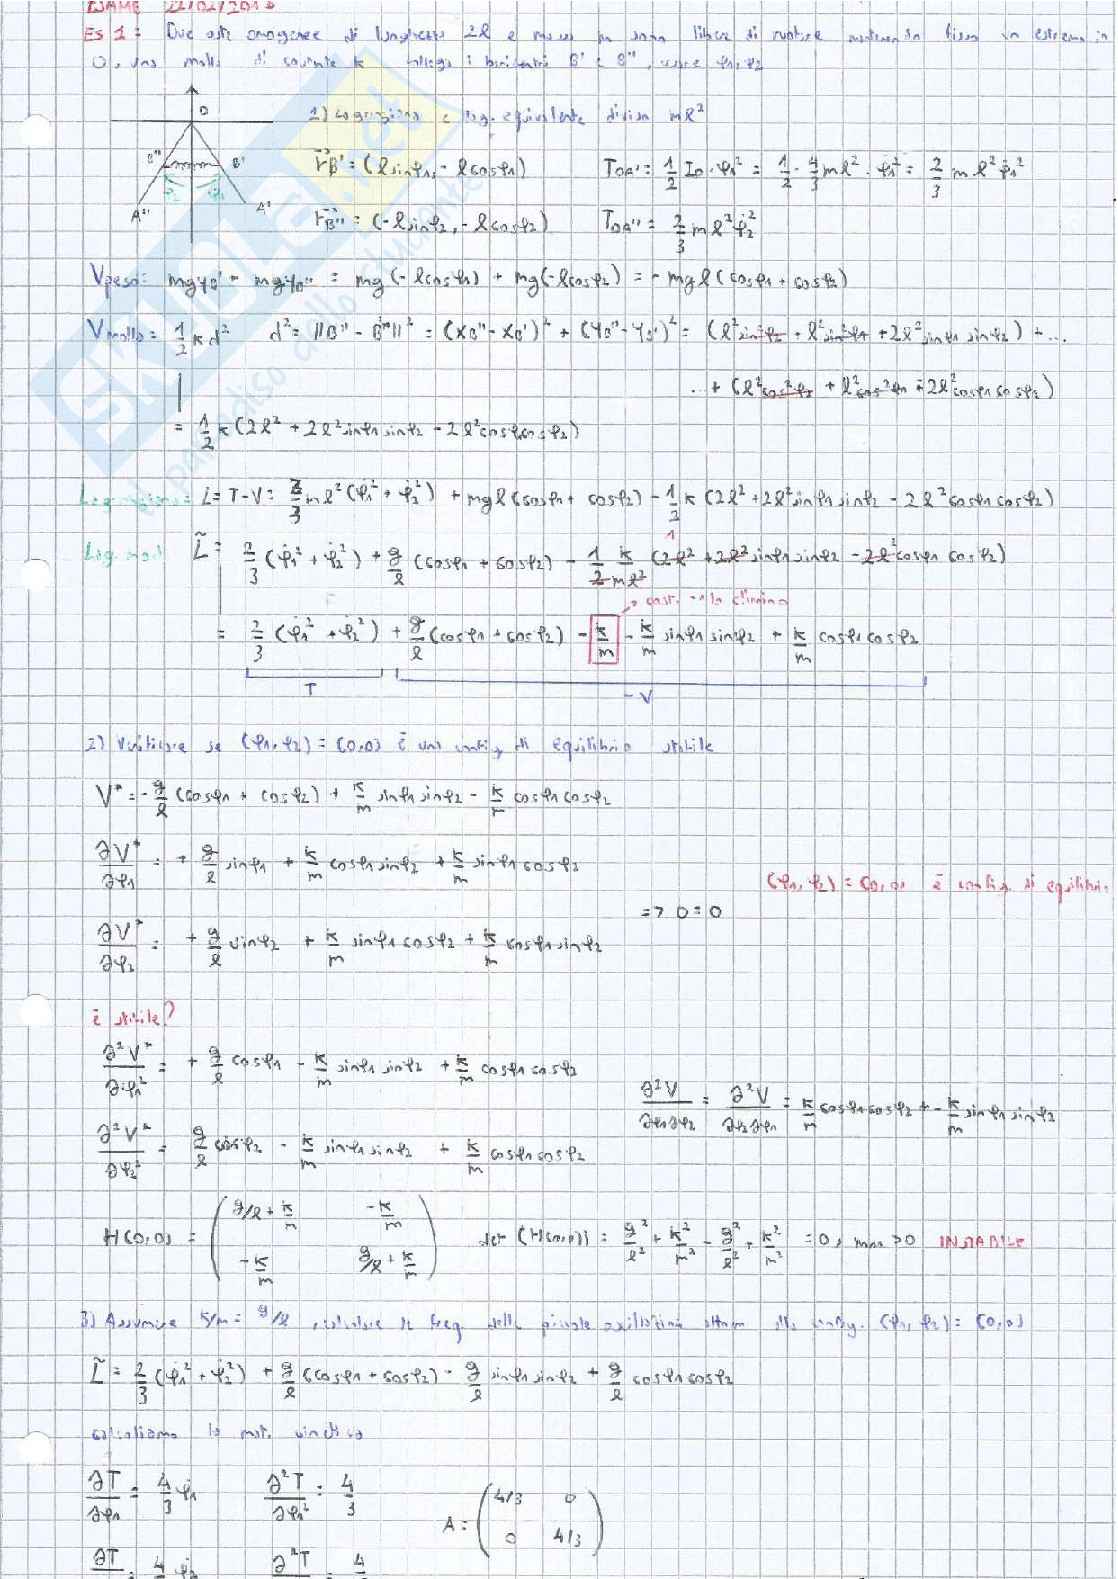 ESAME 22/02/2013
ES 1: Due aste omogenee di lunghezza 2l e massa m sono libere di ruotare mantenendo fisso un estremo in
O, una molla di costante k collega i baricentri B' e B'', usare φ1, φ2
O
B'' B'
φ2 φ1
A'' A'
1) Lagrangiana e lag. equivalente divisa ml²
r⃗B' = (l sinφ1, -l cosφ1) TOA' = 1/2 Io·φ̇1² = 1/2 · 4/3 ml² · φ̇1² = 2/3 ml²φ̇1²
r⃗B'' = (-l sinφ2, -l cosφ2) TOA'' = 2/3 ml²φ̇2²
Vpeso = mgyB' - mgyB'' = mg(-l cosφ1) + mg(-l cosφ2) = -mgl(cosφ1 + cosφ2)
Vmolla = 1/2 k d² d² = ||B'' - B'||² = (xB'' - xB')² + (yB'' - yB')² = (l² sin²φ2 + l² sin²φ1 + 2l² sinφ1 sinφ2) + ...
... + (l² cos²φ2 + l² cos²φ1 - 2l² cosφ1 cosφ2)
= 1/2 k(2l² + 2l² sinφ1 sinφ2 - 2l² cosφ1 cosφ2)
Lagrangiana = L = T-V = 2/3 ml²(φ̇1² + φ̇2²) + mgl(cosφ1 + cosφ2) - 1/2 k(2l² + 2l² sinφ1 sinφ2 - 2l² cosφ1 cosφ2)
Lag. mod L̃ = 2/3 (φ̇1² + φ̇2²) + g/l (cosφ1 + cosφ2) - 1/2 k/ml² (2l² + 2l² sinφ1 sinφ2 - 2l² cosφ1 cosφ2)
cost. → la elimino
= 2/3 (φ̇1² + φ̇2²) + g/l (cosφ1 + cosφ2) - k/m - k/m sinφ1 sinφ2 + k/m cosφ1 cosφ2
T -V
2) Verificare se (φ1, φ2) = (0,0) è una config. di equilibrio stabile
V* = -g/l (cosφ1 + cosφ2) + k/m sinφ1 sinφ2 - k/m cosφ1 cosφ2
∂V*/∂φ1 = + g/l sinφ1 + k/m cosφ1 sinφ2 + k/m sinφ1 cosφ2
(φ1, φ2) = (0,0) è config. di equilibrio
=> 0 = 0
∂V*/∂φ2 = + g/l sinφ2 + k/m sinφ1 cosφ2 + k/m cosφ1 sinφ2
è stabile?
∂²V*/∂φ1² = + g/l cosφ1 - k/m sinφ1 sinφ2 + k/m cosφ1 cosφ2
∂²V/∂φ1∂φ2 = ∂²V/∂φ2∂φ1 = k/m cosφ1 cosφ2 + - k/m sinφ1 sinφ2
∂²V*/∂φ2² = g/l cosφ2 - k/m sinφ1 sinφ2 + k/m cosφ1 cosφ2
H(0,0) = ( g/l + k/m -k/m
-k/m g/l + k/m ) det (H(0,0)) = g²/l² + k²/m² - g²/l² + k²/m² = 0, >0 INSTABILE
3) Assumere k/m = g/l, calcolare le freq. delle piccole oscillazioni attorno alla config. (φ1, φ2) = (0,0)
L̃ = 2/3 (φ̇1² + φ̇2²) + g/l (cosφ1 + cosφ2) - g/l sinφ1 sinφ2 + g/l cosφ1 cosφ2
calcoliamo la mat. cinetica
∂T/∂φ1 = 4/3 φ̇1 ∂²T/∂φ1² = 4/3
A = ( 4/3 0
0 4/3 )
∂T = 4 φ̇2 ∂²T = 4
SKUOLA.net
il paradiso dello studente